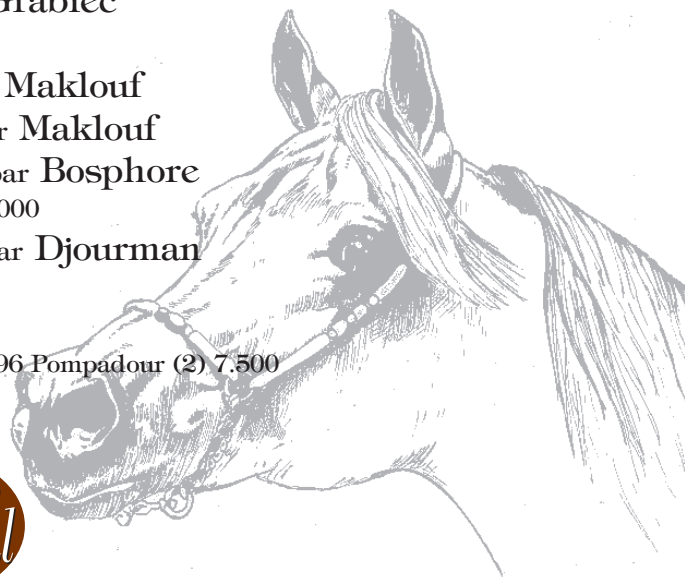 Grabiec
Maklouf
r Maklouf
par Bosphore
000
ar Djourman
96 Pompadour (2) 7.500
l